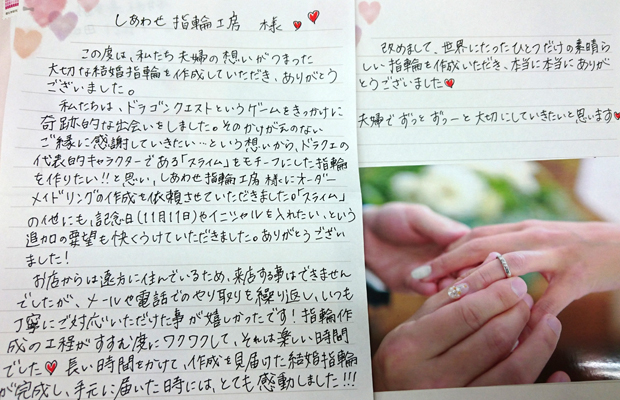 しあわせ 指輪工房 様
この度は、私たち夫婦の想いがつまった
大切な結婚指輪を作成していただき、ありがとう
ございました。
私たちは、ドラゴンクエストというゲームをきっかけに
奇跡的な出会いをしました。そのかけがえのない
ご縁に感謝していきたい…という想いから、ドラクエの
代表的キャラクターである「スライム」をモチーフにした指輪
を作りたい!!と思い、しあわせ指輪工房様にオーダー
メイドリングの作成を依頼させていただきました。「スライム」
の他にも、記念日(11月11日)やイニシャルを入れたい、という
追加の要望も快くうけていただきました。ありがとうござい
ました!
お店からは遠方に住んでいるため、来店する事はできません
でしたが、メールや電話でのやり取りを繰り返し、いつも
丁寧にご対応いただけた事が嬉しかったです!指輪作
成の工程がすすむ度にワクワクして、それは楽しい時間
でした♥長い時間をかけて、作成を見届けた結婚指輪
が完成し、手元に届いた時には、とても感動しました!!!
改めまして、世界にたったひとつだけの素晴ら
しい指輪を作成いただき、本当に本当にありが
とうございました♥
夫婦でずっとずっーと大切にしていきたいと思います♥